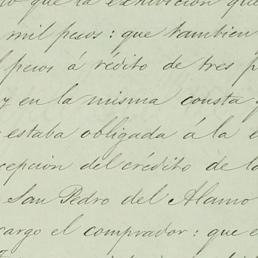 que la exhibición que
mil pesos: que tambien
pesos á rédito de tres p
y en la misma consta
estaba obligada á la e
cepcion del crédito de la
San Pedro del Alamo
cargo el comprador: que e